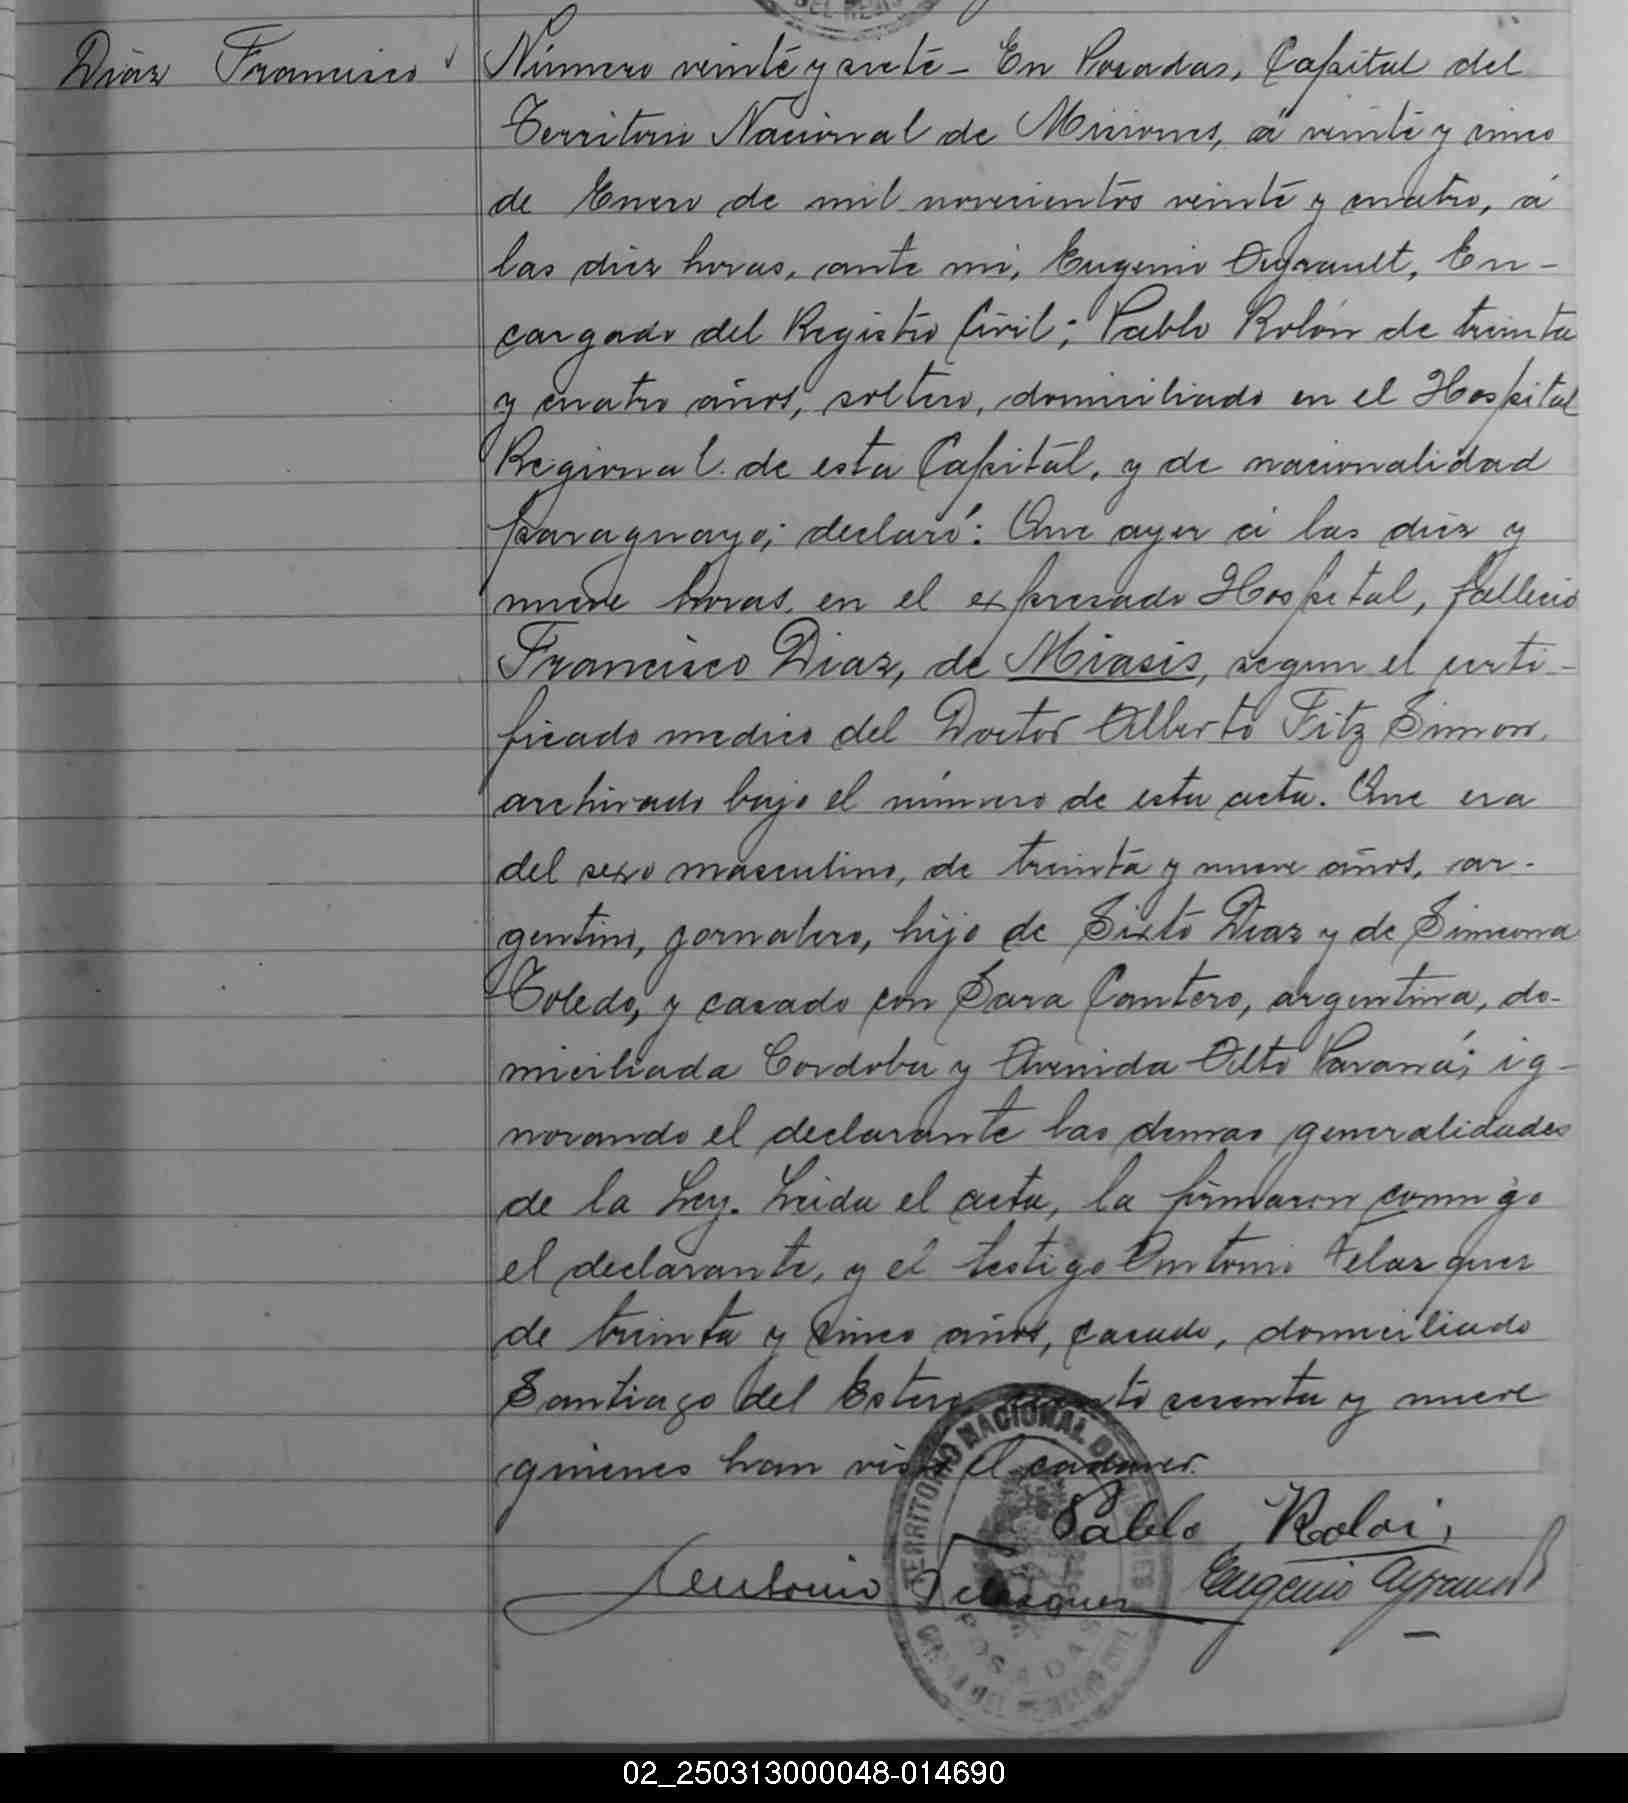 Diaz Francisco
Número veinte y siete - En Posadas, Capital del
Territorio Nacional de Misiones, á veinte y cinco
de Enero de mil novecientos veinte y cuatro, á
las diez horas, ante mi, Eugenio Ayrault, En-
cargado del Registro Civil; Pablo Rolón de treinta
y cuatro años, soltero, domiciliado en el Hospital
Regional de esta Capital, y de nacionalidad
paraguayo; declaró: Que ayer á las diez y
nueve horas en el expresado Hospital, fallecio
Francisco Diaz, de Miasis, segun el certi-
ficado medico del Doctor Alberto Fitz Simon,
archivado bajo el número de esta acta. Que era
del sexo masculino, de treinta y nueve años, ar-
gentino, jornalero, hijo de Sixto Diaz y de Simeona
Toledo, y casado con Sara Cantero, argentina, do-
miciliada Cordoba y Avenida Alto Paraná; ig-
norando el declarante las demas generalidades
de la Ley. Leida el acta, la firmaron conmigo
el declarante, y el testigo Antonio Velazquez
de treinta y cinco años, casado, domiciliado
Santiago del Estero ciento sesenta y nueve
quienes han visto el cadaver.
Pablo Roloi
Antonio Velazquez
Eugenio Ayrault
TERRITORIO NACIONAL DE MISIONES
POSADAS
02_250313000048-014690